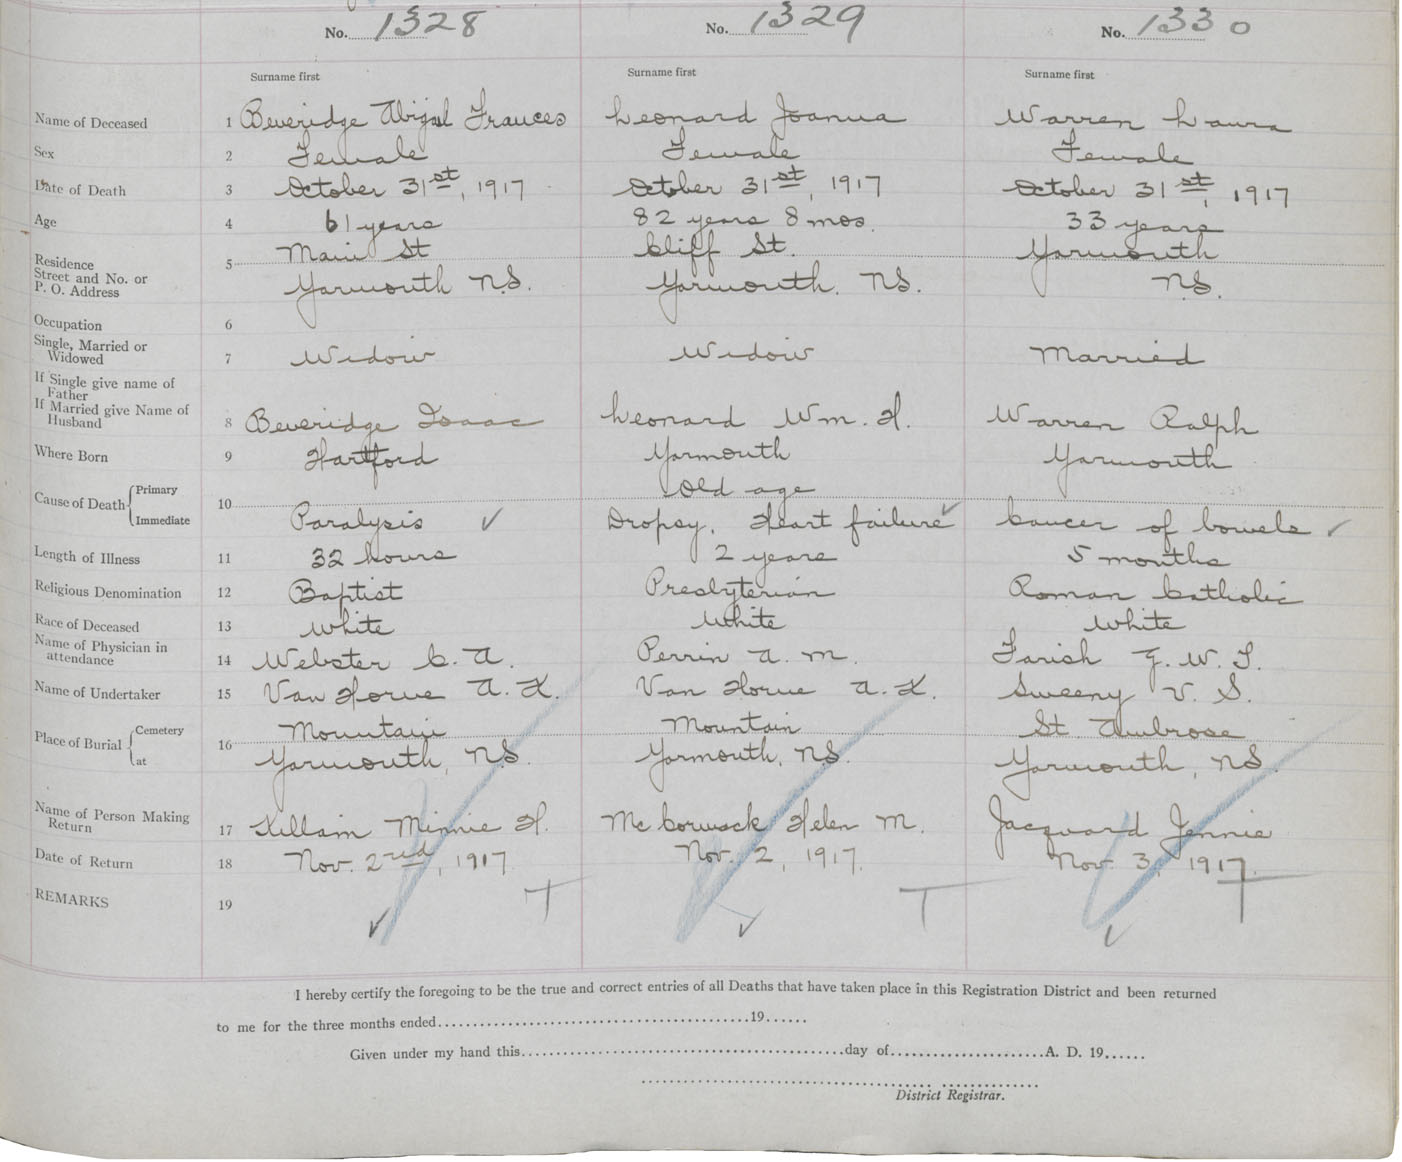 No. 1328 No. 1329 No. 1330
Surname first Surname first Surname first
Name of Deceased 1 Beveridge Abigail Frances Leonard Joanna Warren Laura
Sex 2 Female Female Female
Date of Death 3 October 31st, 1917 October 31st, 1917 October 31st, 1917
Age 4 61 years 82 years 8 mos. 33 years
Residence 5 Main St Cliff St. Yarmouth
Street and No. or
P. O. Address Yarmouth N.S. Yarmouth. N.S. N.S.
Occupation 6
Single, Married or
Widowed 7 Widow Widow Married
If Single give name of
Father
If Married give Name of
Husband 8 Beveridge Isaac Leonard Wm. H. Warren Ralph
Where Born 9 Hartford Yarmouth Yarmouth
Cause of Death Primary 10 Old age
Immediate Paralysis ✓ Dropsy, Heart failure ✓ Cancer of bowels ✓
Length of Illness 11 32 hours 2 years 5 months
Religious Denomination 12 Baptist Presbyterian Roman Catholic
Race of Deceased 13 White White White
Name of Physician in
attendance 14 Webster C. A. Perrin A. M. Farish G. W. T.
Name of Undertaker 15 Van Horne A. K. Van Horne A. K. Sweeny V. S.
Place of Burial Cemetery 16 Mountain Mountain St Ambrose
at Yarmouth, N.S. Yarmouth, N.S. Yarmouth, N.S.
Name of Person Making
Return 17 Killam Minnie H. McCormack Helen M. Jacquard Jennie
Date of Return 18 Nov. 2nd, 1917 Nov. 2, 1917. Nov. 3, 1917.
REMARKS 19 ✓ T ✓ T ✓ T
I hereby certify the foregoing to be the true and correct entries of all Deaths that have taken place in this Registration District and been returned
to me for the three months ended..........19......
Given under my hand this..........day of..........A. D. 19......
District Registrar.